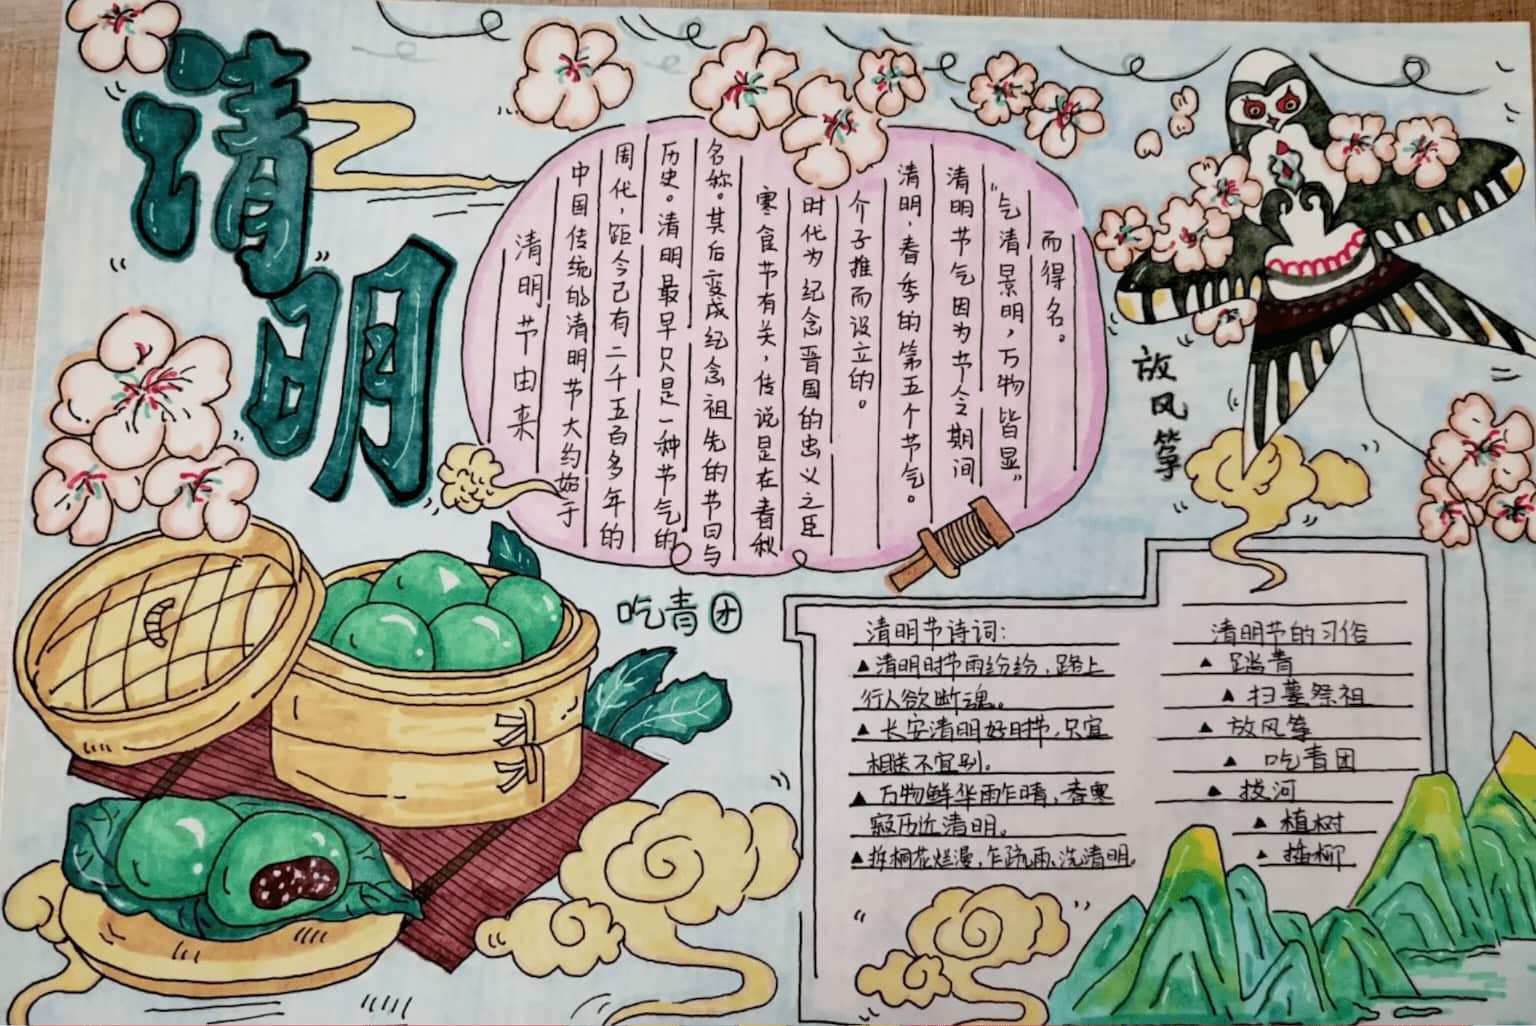 清明
清明节由来
中国传统的清明节大约始于
周代，距今已有二千五百多年的
历史。清明最早只是一种节气的
名称。其后变成纪念祖先的节日与
寒食节有关，传说是在春秋
时代为纪念晋国的忠义之臣
介子推而设立的。
清明，春季的第五个节气。
清明节气因为节令期间
“气清景明，万物皆显”
而得名。
放风筝
吃青团
清明节诗词：
▲清明时节雨纷纷，路上
行人欲断魂。
▲长安清明好时节，只宜
相送不宜别。
▲万物鲜华雨乍晴，春寒
寂历近清明。
▲拆桐花烂漫，乍疏雨、洗清明。
清明节的习俗
▲踏青
▲扫墓祭祖
▲放风筝
▲吃青团
▲拔河
▲植树
▲插柳